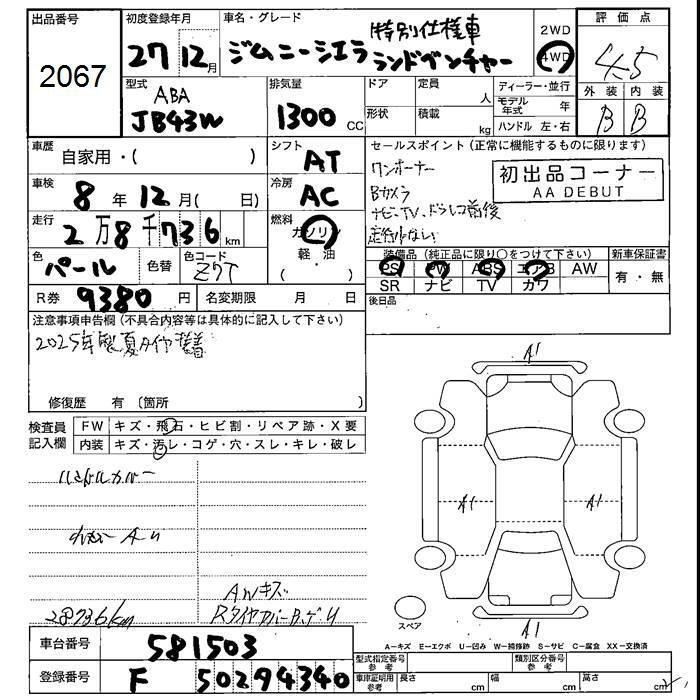 出品番号
2067
初度登録年月
27 12月
車名・グレード
特別仕様車
ジムニーシエラ ランドベンチャー
2WD
4WD
評価点
4.5
外装 内装
B B
型式
ABA
JB43W
排気量
1300 CC
ドア
形状
定員 人
積載 kg
ディーラー・並行
モデル年式 年
ハンドル 左・右
車歴 自家用・( )
シフト AT
車検 8年 12月( 日)
冷房 AC
走行 2万8千736km
燃料 ガソリン
軽・油
色 パール 色替
色コード Z7T
R券 9380円
名変期限 月 日
セールスポイント (正常に機能するものに限ります)
ワンオーナー
Bカメラ
ナビ・TV、ドラレコ前後
初出品コーナー
AA DEBUT
装備品 (純正品に限り○をつけて下さい)
PS PW ABS エアB AW
SR ナビ TV カワ
新車保証書
有・無
後日品
注意事項申告欄 (不具合内容等は具体的に記入して下さい)
2025年製夏タイヤ装着
修復歴 有 (箇所 )
検査員記入欄
FW キズ・飛石・ヒビ割・リペア跡・X要
内装 キズ・汚レ・コゲ・穴・スレ・キレ・破レ
ハンドルカバー
28736km
AWキズ
A1
A1
A1
A1
スペア
A－キズ E－エクボ U－凹み W－補修跡 S－サビ C－腐食 XX－交換済
車台番号 581503
登録番号 F 50294340
型式指定番号 参考
類別区分番号 参考
車庫証明用 参考 長さ cm 幅 cm 高さ cm